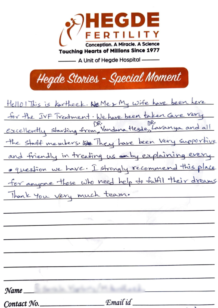 HEGDE
FERTILITY
Conception. A Miracle. A Science
Touching Hearts of Millions Since 1977
A Unit of Hegde Hospital
Hegde Stories - Special Moment
Hello! This is kartheek. Me & My wife have been here
for the IVF Treatment. We have been taken care very
excellently starting from DR Vandana Hegde, DR Lavanya and all
the staff members. They have been very supportive
and friendly in treating us by explaining every
question we have. I strongly recommend this place
for anyone those who need help to fulfil their dreams
Thank you very much team.
Name
Contact No. Email id